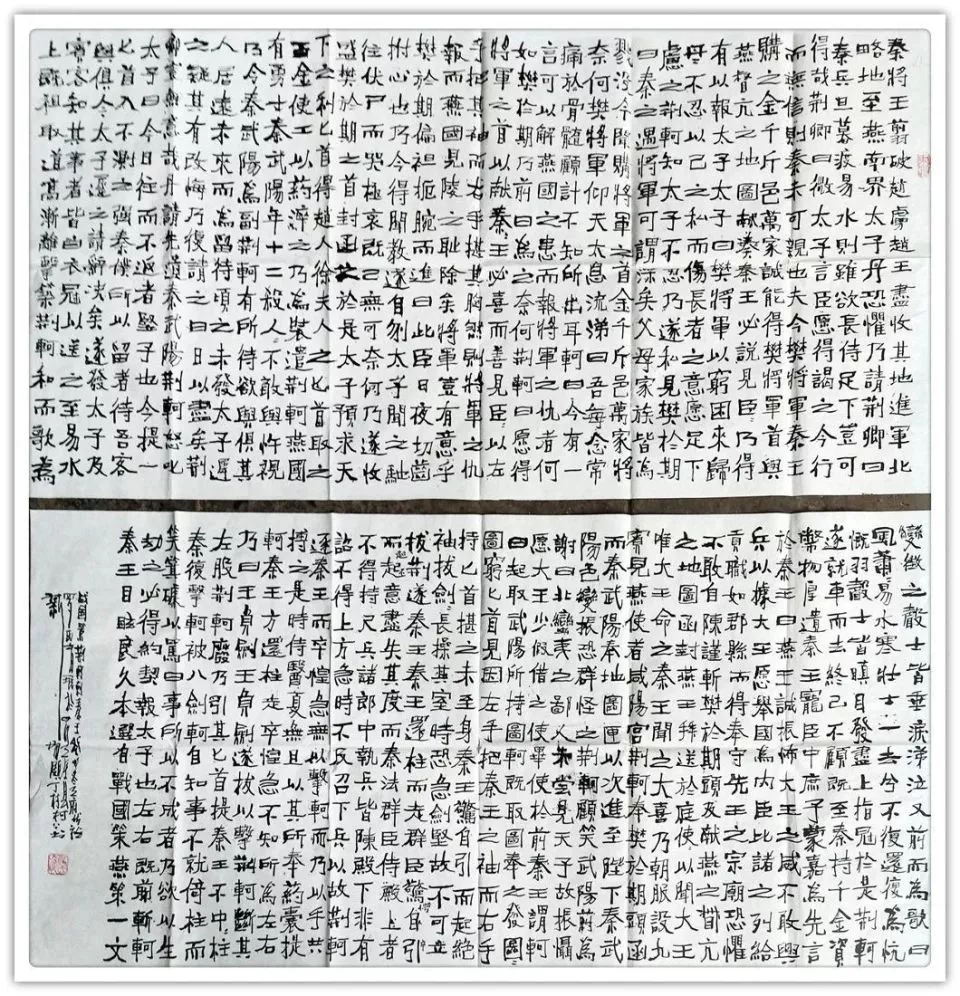 秦將王翦破趙虜趙王盡收其地進軍北
略地至燕南界太子丹恐懼乃請荆卿曰
秦兵旦暮渡易水則雖欲長侍足下豈可
得哉荆卿曰微太子言臣愿得謁之今行
而無信則秦未可親也夫今樊將軍秦王
購之金千斤邑萬家誠能得樊將軍首與
燕督亢之地圖獻秦王秦王必說見臣臣乃得
有以報太子太子曰樊將軍以窮困來歸
丹丹不忍以己之私而傷長者之意愿足下
慮之荆軻知太子不忍乃遂私見樊於期
曰秦之遇將軍可謂深矣父母宗族皆為
戮没今聞購將軍之首金千斤邑萬家將
奈何樊將軍仰天太息流涕曰吾每念常
痛於骨髓顧計不知所出耳軻曰今有一
言可以解燕國之患而報將軍之仇者何
如樊於期乃前曰為之奈何荆軻曰愿得
將軍之首以献秦王秦王必喜而善見臣臣以左
手把其袖而右手揕其胸然則將軍之仇
報而燕國見陵之耻除矣將軍豈有意乎
樊於期偏袒扼腕而進曰此臣日夜切齒
拊心也乃今得聞教遂自刎太子聞之馳
往伏尸而哭極哀既已無可奈何乃遂收
盛樊於期之首封函之於是太子預求天
下之利匕首得趙人徐夫人之匕首取之
百金使工以药淬之乃為裝遣荆軻燕國
有勇士秦武陽年十二殺人人不敢與忤視
乃令秦武陽為副荆軻有所待欲與俱其
人居遠未來而為留待頃之未發太子遲
之疑其有改悔乃復請之曰日以盡矣荆
卿豈無意哉丹請先遣秦武陽荆軻怒叱
太子曰今日往而不返者竪子也今提一
匕首入不測之强秦僕所以留者待吾客
與俱今太子遲之請辭决矣遂發太子及
賓客知其事者皆白衣冠以送之至易水
上既祖取道高漸離擊築荆軻和而歌為
變徵之聲士皆垂淚涕泣又前而為歌曰
風蕭易水寒壯士一去兮不復還復為忼
慨羽聲士皆瞋目發盡上指冠於是荆軻
遂就車而去終已不顧既至秦持千金資
幣物厚遺秦王寵臣中庶子蒙嘉為先言
於秦王曰燕王誠振怖大王之威不敢興
兵以據大王愿舉國為内臣比諸之列給
貢職如郡縣而得奉守先王之宗廟恐懼
不敢自陳謹斬樊於期頭及献燕之督亢
之地圖函封燕王拜送於庭使以聞大王
唯大王命之秦王聞之大喜乃朝服設九
賓見燕使者咸陽宮荆軻奉樊於期頭函
而秦武陽奉地圖匣以次進至陛下秦武
陽色變振恐群臣怪之荆軻顧笑武陽前為
謝曰北蠻夷之鄙人未嘗見天子故振懾
愿大王少假借之使畢使於前秦王謂軻
曰起取武陽所持圖軻既取圖奉之發圖
圖窮匕首見因左手把秦王之袖而右手
持匕首揕之未至身秦王驚自引而起絕
袖拔劍長操其室時恐急劍堅故不可立
拔荆軻逐秦王秦王還柱而走群臣驚愕
而起意盡失其度而秦法群臣侍殿上者
不得持尺兵諸郎中執兵皆陳殿下非有
詔不得上方急時不反召下兵以故荆軻
逐秦王而卒惶急無以擊軻而乃以手共
搏之是時侍醫夏無且以其所奉药囊提
軻秦王方還柱走卒惶急不知所為左右
乃曰王負劍王負劍遂拔以擊荆軻斷其
左股荆軻廢乃引其匕首提秦王不中中柱
秦復擊軻軻被八劍軻自知事不就倚柱而
笑箕踞以罵曰事所以不成者乃欲以生
劫之必得約契報太子也左右既前斬軻
秦王目眩良久本選自戰國策燕第一文